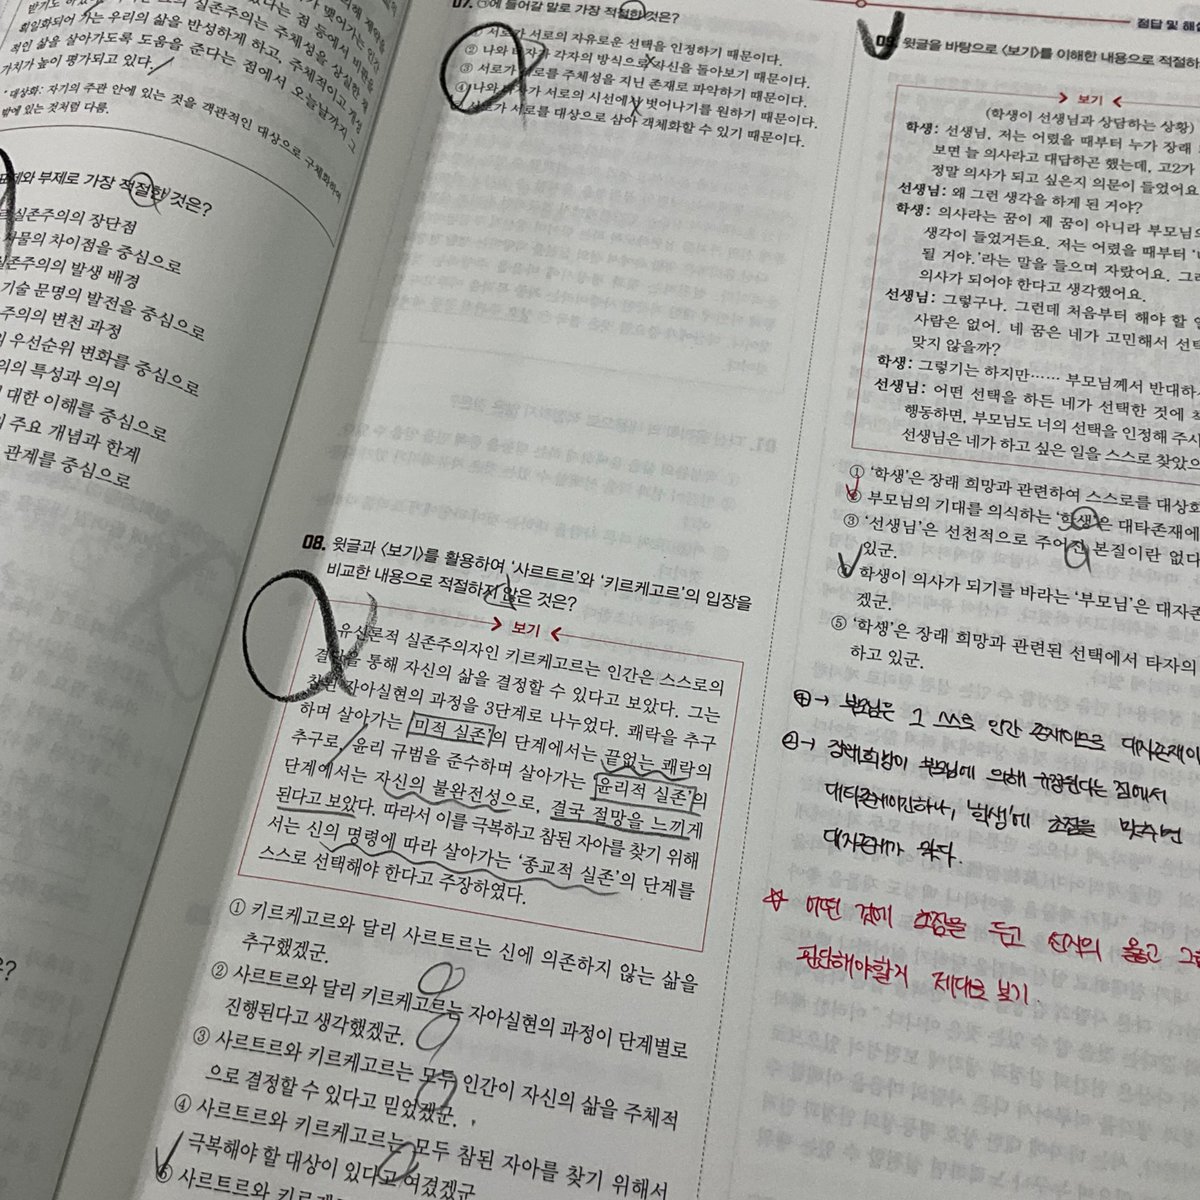 회일화되어 가는 우리의 삶을 반성하게 하고, 주체적이고 개성
적인 삶을 살아가도록 도움을 준다는 점에서 오늘날까지 그
가치가 높이 평가되고 있다.
* 대상화: 자기의 주관 안에 있는 것을 객관적인 대상으로 구체화하여
밖에 있는 것처럼 다룸.
부제로 가장 적절한 것은?
실존주의의 장단점
차이점을 중심으로
발생 배경
기술 문명의 발전을 중심으로
주의의 변천 과정
우선순위 변화를 중심으로
특성과 의의
대한 이해를 중심으로
주요 개념과 한계
관계를 중심으로
07. ㉠에 들어갈 말로 가장 적절한 것은?
① 서로가 서로의 자유로운 선택을 인정하기 때문이다.
② 나와 타자가 각자의 방식으로 자신을 돌아보기 때문이다.
③ 서로가 서로를 주체성을 지닌 존재로 파악하기 때문이다.
④ 나와 타자가 서로의 시선에서 벗어나기를 원하기 때문이다.
서로가 서로를 대상으로 삼아 객체화할 수 있기 때문이다.
08. 윗글과 <보기>를 활용하여 '사르트르'와 '키르케고르'의 입장을
비교한 내용으로 적절하지 않은 것은?
보기
유신론적 실존주의자인 키르케고르는 인간은 스스로의
결단을 통해 자신의 삶을 결정할 수 있다고 보았다. 그는
참된 자아실현의 과정을 3단계로 나누었다. 쾌락을 추구
하며 살아가는 '미적 실존'의 단계에서는 끝없는 쾌락의
추구로, 윤리 규범을 준수하며 살아가는 '윤리적 실존'의
단계에서는 자신의 불완전성으로, 결국 절망을 느끼게
된다고 보았다. 따라서 이를 극복하고 참된 자아를 찾기 위해
서는 신의 명령에 따라 살아가는 '종교적 실존'의 단계를
스스로 선택해야 한다고 주장하였다.
① 키르케고르와 달리 사르트르는 신에 의존하지 않는 삶을
추구했겠군.
② 사르트르와 달리 키르케고르는 자아실현의 과정이 단계별로
진행된다고 생각했겠군.
③ 사르트르와 키르케고르는 모두 인간이 자신의 삶을 주체적
으로 결정할 수 있다고 믿었겠군.
④ 사르트르와 키르케고르는 모두 참된 자아를 찾기 위해서
극복해야 할 대상이 있다고 여겼겠군.
⑤ 사르트르와 키르케고르
정답 및 해설
09. 윗글을 바탕으로 <보기>를 이해한 내용으로 적절하
보기
(학생이 선생님과 상담하는 상황)
학생: 선생님, 저는 어렸을 때부터 누가 장래
보면 늘 의사라고 대답하곤 했는데, 고2가
정말 의사가 되고 싶은지 의문이 들었어요
선생님: 왜 그런 생각을 하게 된 거야?
학생: 의사라는 꿈이 제 꿈이 아니라 부모님의
생각이 들었거든요. 저는 어렸을 때부터
될 거야.'라는 말을 들으며 자랐어요. 그래
의사가 되어야 한다고 생각했어요.
선생님: 그렇구나. 그런데 처음부터 해야 할
사람은 없어. 네 꿈은 네가 고민해서 선택
맞지 않을까?
학생: 그렇기는 하지만…… 부모님께서 반대하
선생님: 어떤 선택을 하든 네가 선택한 것에
행동하면, 부모님도 너의 선택을 인정해 주시
선생님은 네가 하고 싶은 일을 스스로 찾았으
① '학생'은 장래 희망과 관련하여 스스로를 대상화
② 부모님의 기대를 의식하는 '학생'은 대타존재에
③ '선생님'은 선천적으로 주어진 본질이란 없다
있군.
학생이 의사가 되기를 바라는 '부모님'은 대자존
겠군.
⑤ '학생'은 장래 희망과 관련된 선택에서 타자의
하고 있군.
④→ 부모님은 그 스스로 인간 존재이므로 대자존재이
②→ 장래희망이 부모님에 의해 규정된다는 점에서
대타존재이긴하나, '학생'에 초점을 맞추면
대자존재가 맞다.
☆ 어떤 점에 초점을 두고 선지의 옳고 그름
판단해야할지 제대로 보기